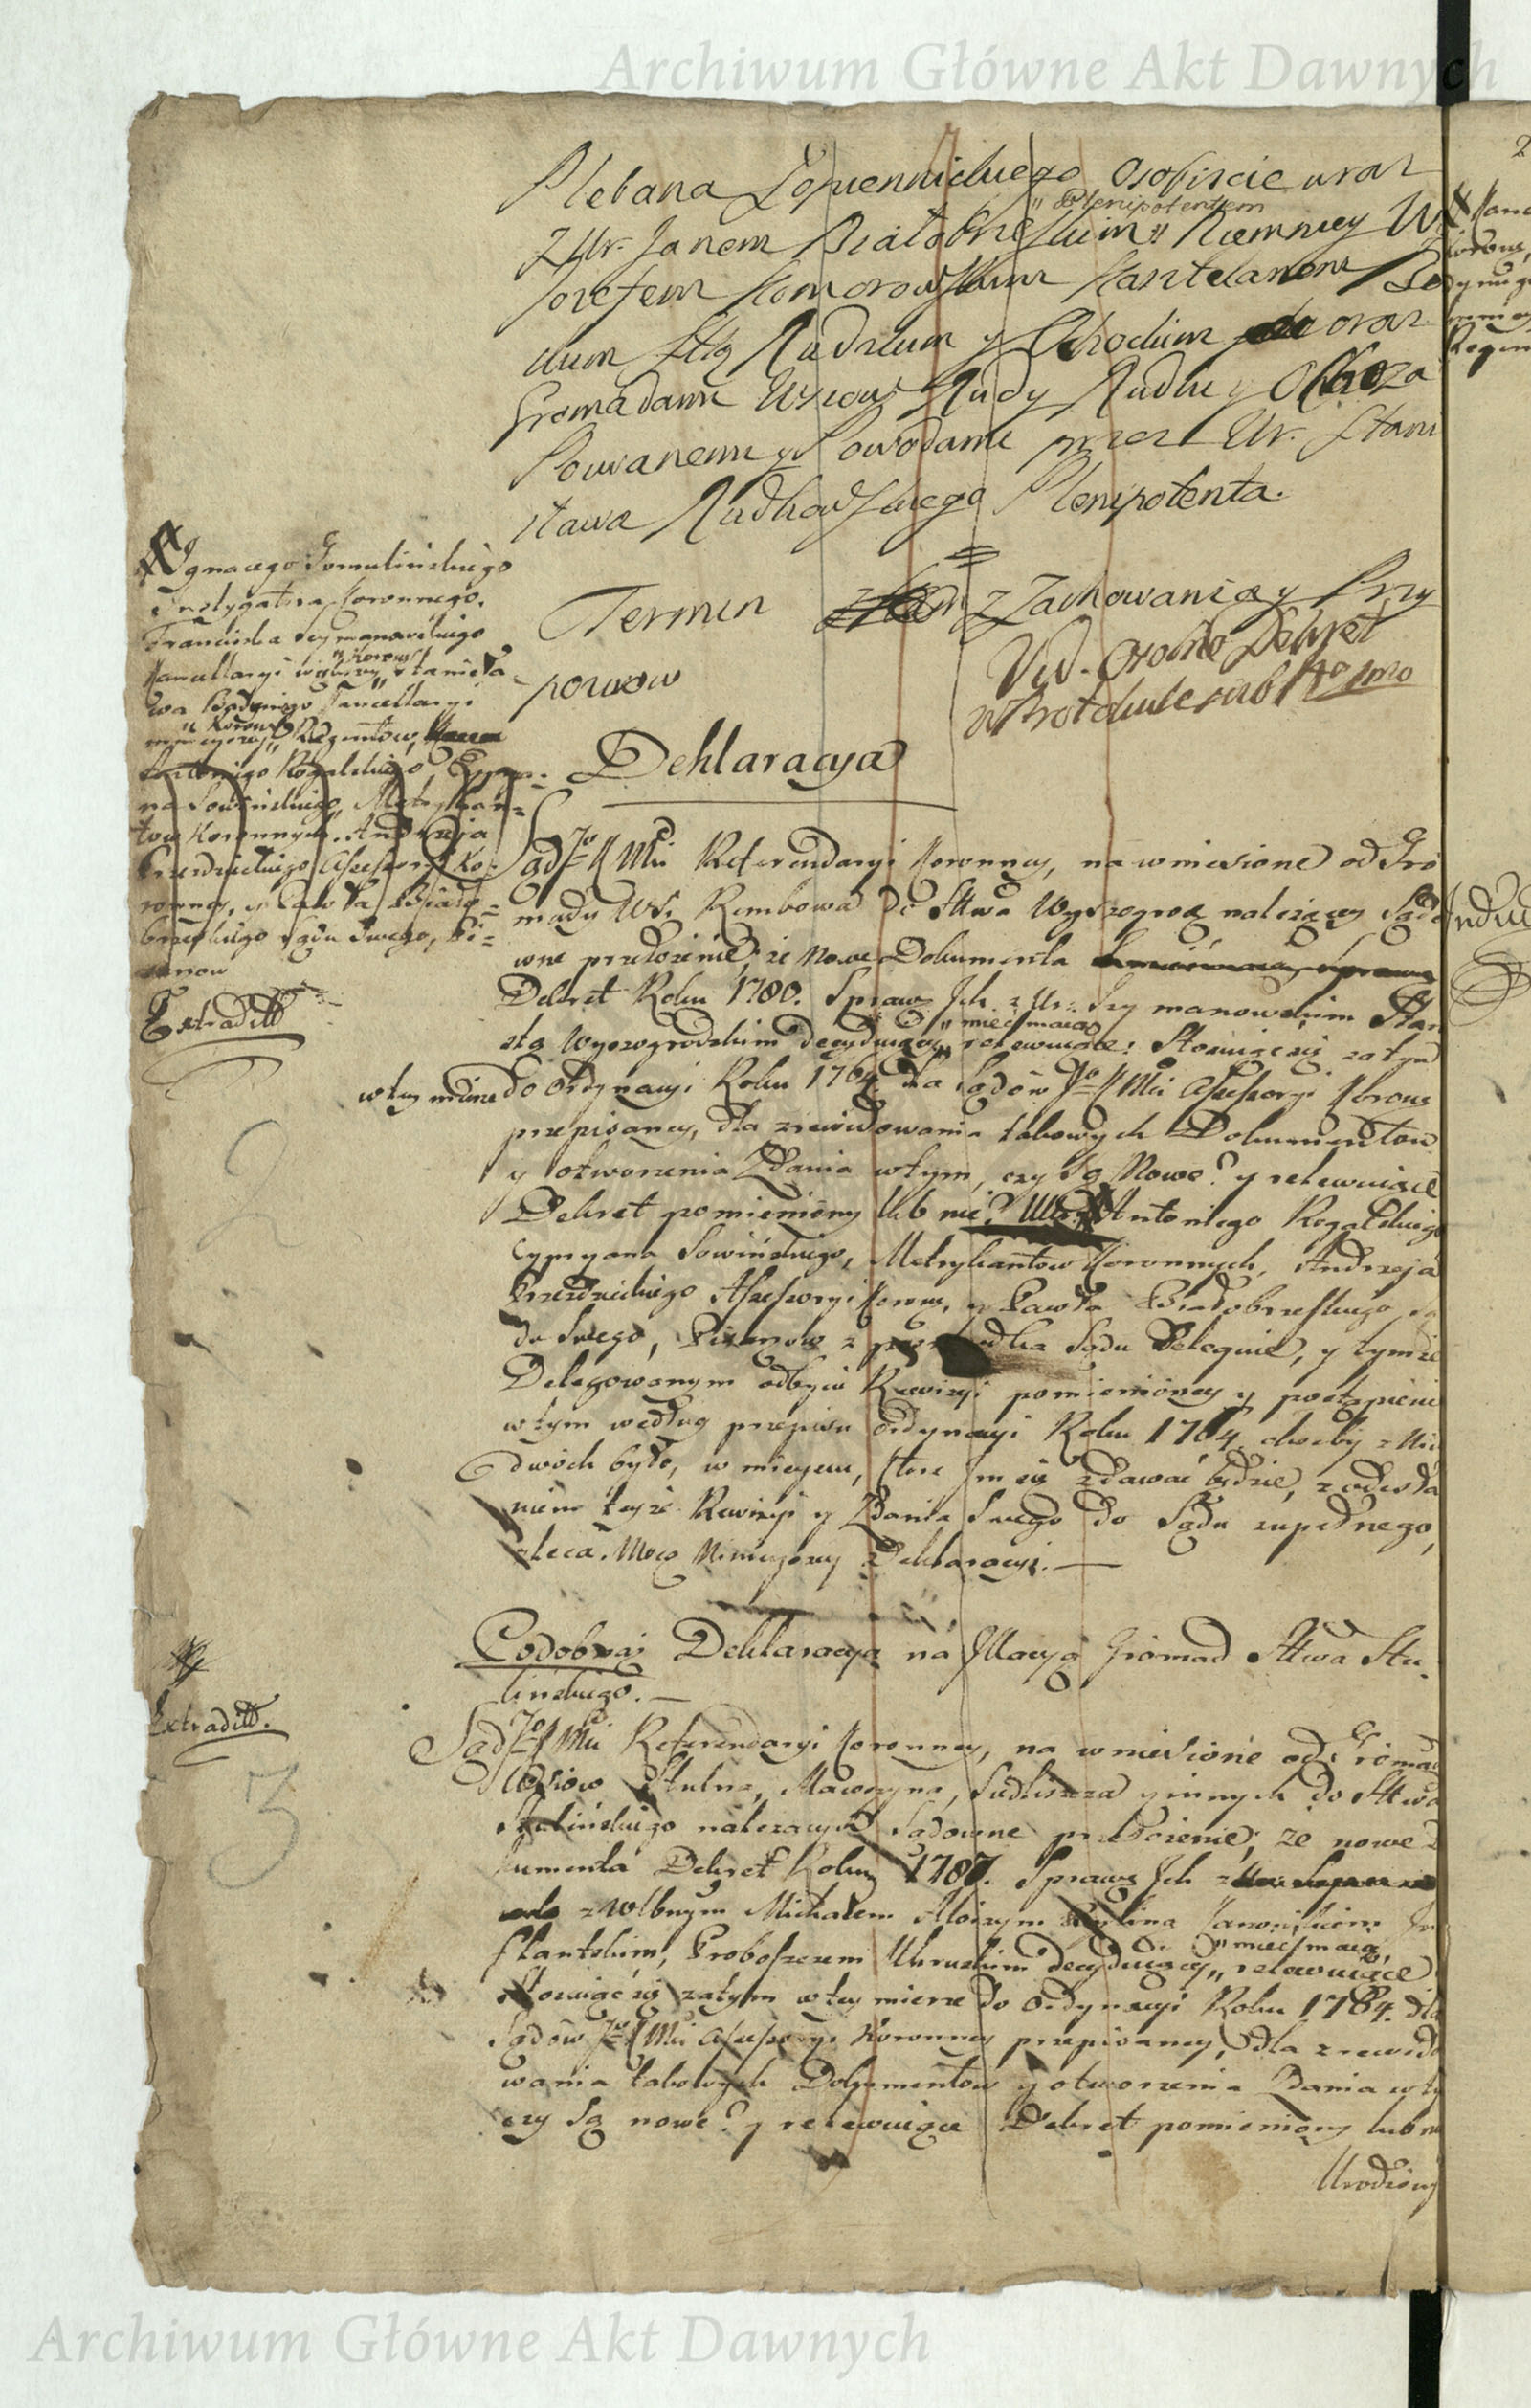 Archiwum Główne Akt Dawnych
Plebana Łopiennickiego Osobiscie wraz
" Plenipotentem
z Ur. Janem Białobrzeskim " Niemniey W
Jozefem Komorowskim Kasztelanem
Rudzkim y Ochodium oraz
Gromadami Wsiow Rudy Rudki y Ochoza
Pozwanemi y Powodami przez Ur. Stani
sława Rudkowskiego Plenipotenta.
Termin z Zachowania y Przy
pozwow
Vid. Dekret
w Protokule sub No 1mo
Ignacego Gomulińskiego
Instygatora Koronnego,
Franciszka Szymanowskiego
" Koron
Kancellaryi więkzey " Stanisła
wa Kancellaryi
" Koron
mnieyszey " Regentów,
Antoniego Rogalskiego, Cypry-
na Sowińskiego, Metrykan-
tow Koronnych. Andrzeja
Przezdzieckiego Assessoryi Ko-
ronney, y Pawła Biało-
brzeskiego Sądu Swego, Pi-
sarzow
Extradtt
Deklaracya
Sąd Jo K Mci Referendaryi Koronney, na wniesione od Gro
mady Wsi Rembowa do Sttwa Wyszogrod należącey Sądo
wne przełożenie, że Nowe Dokumenta
Dekret Roku 1780. Sprawę Ich z Ur: Szymanowskim Staro
" mieć maią
stą Wyszogrodzkim decyduiący " relewuiące: Stosuiąc się zatym
w tey mierze do Ordynacyi Roku 1764. dla Sądów Jo K Mci Assessoryi Koron
przepisaney, dla zrewidowania takowych Dokumentow
y otworzenia Zdania w tym, czy są Nowe? y relewuiące
Dekret pomieniony lub nie? Antoniego Rogalskiego
Cypryana Sowińskiego, Metrykantow Koronnych, Andrzeja
Przezdzieckiego Assessoryi Koron, y Pawła Białobrzeskiego są
du Swego, Pisarzow z Sądu Deleguie, y tymże
Delegowanym odbycie Rewizyi pomienioney y postąpienie
w tym według przepisu Ordynacyi Roku 1764. choćby z Nich
dwóch było, w mieyscu, ktore Im się zdawać będzie, z odesła
niem teyże Rewizyi y Zdania Swego do Sądu zupełnego,
zleca. Mocą Ninieyszey Deklaracyi. —
Podobnaż Deklaracya na Jllacyą Gromad Sttwa Stu-
linskiego. —
Extradtt.
Sąd Jo K Mci Referendaryi Koronney, na wniesione od Gromad
Wsiow Stulna, Sudliszcza y innych do Sttwa
Stulińskiego należących Sądowne przełożenie, że nowe D
kumenta Dekret Roku 1787. Sprawę Ich
z Wlbnym Michałem Aloizym Kanonikiem In
" mieć maią,
flantskim, Proboszczem Uhruskim decyduiący " relewuiące
Stosuiąc się zatym w tey mierze do Ordynacyi Roku 1764. dla
Sądów Jo K Mci Assessoryi Koronney przepisaney, dla zrewido
wania takowych Dokumentow y otworzenia Zdania w ty
czy są nowe? y relewuiące Dekret pomieniony lub n
Urodzony
2
3
Archiwum Główne Akt Dawnych